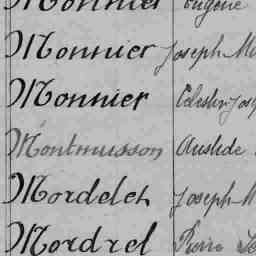 Monnier Eugène
Monnier Joseph M
Monnier Célestin Jos
Montmusson Aristide
Mordelet Joseph M
Mordrel Pierre